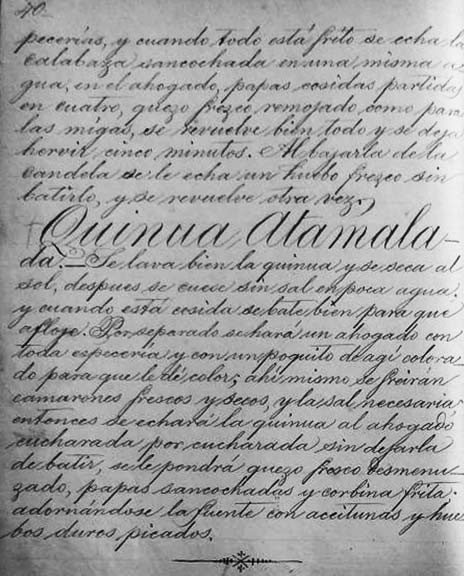 40-
pecerías, y cuando todo está frito se echa la
calabaza sancochada en una misma a
gua, en el ahogado, papas cosidas partidas
en cuatro, quezo frezco remojado como para
las migas, se revuelve bien todo y se deja
hervir cinco minutos. Al bajarla de la
candela se le echa un huebo frezco sin
batirlo, y se revuelve otra vez,
Quinua Atamala-
da.- Se lava bien la quinua y se seca al
sol, despues se cuese sin sal en poca agua.
y cuando está cosida se bate bien para que
afloje. Por separado se hará un ahogado con
toda especería y con un poquito de agí colora-
do para que le dé color; ahí mismo se freirán
camarones frescos y secos, y la sal necesaria
entonces se echará la quinua al ahogado
cucharada por cucharada sin dejarla
de batir, se le pondrá quezo fresco desmenu-
zado, papas sancochadas y corbina frita.
adornándose la fuente con aceitunas y hue
bos duros picados.